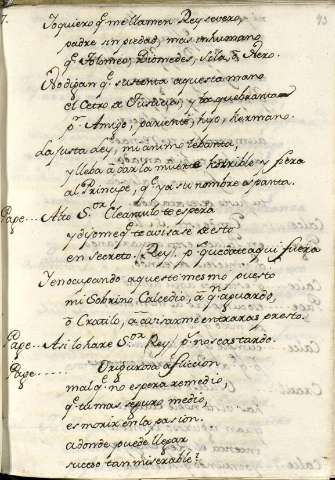 7. Yo quiero q.e me llamen Rey severo, 93
padre sin piedad, mas inhumano
q.e Ptolomeo, Diomedes, Sila, o Nero.
No digan q.e sustenta aquesta mano
el Cetro de Justicia, y la quebranta
p.r Amigo, pariente, hijo, o hermano.
La justa ley, mi animo lebanta,
y lleba a dar la muerte horrible y fiera
al Principe, q.e ya su nombre espanta.
Page.... Alto S.or Cleantulo te espera
y dijome q.e te avisase de esto
en secreto. Rey. p.s quedate aqui fuera
Y en ocupando aqueste mesmo puesto
mi Sobrino Calcedio, a q.n aguardo,
o Cratilo, a avisarme entraras presto.
Page... Asi lo hare S.or Rey. p.s no seas tardo.
Page..... O rigurosa aflicion
mal q.e no espera remedio,
q.e tu mas seguro medio,
es morir en la pasion.
a donde puede llegar
suceso tan miserable?